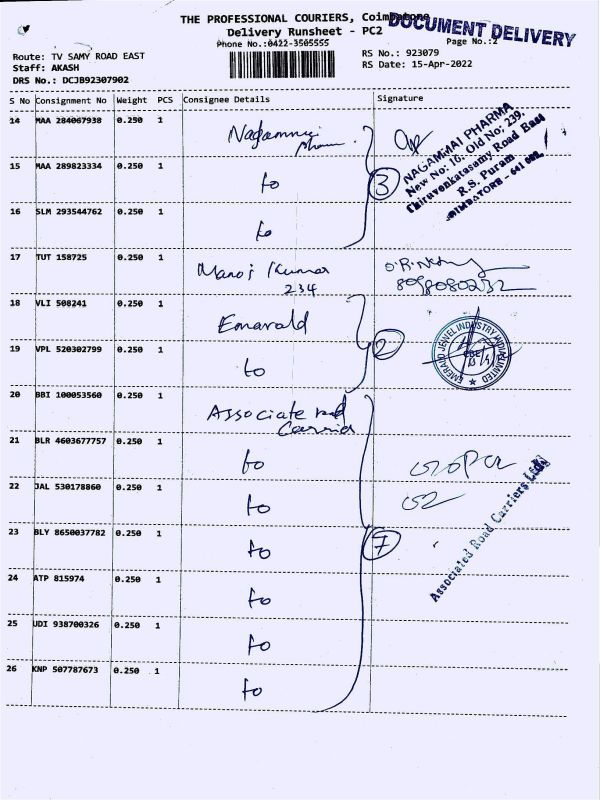 THE PROFESSIONAL COURIERS, Coimbatore
DOCUMENT DELIVERY
Delivery Runsheet - PC2
Phone No.:0422-3505555
Page No.:2
Route: TV SAMY ROAD EAST
RS No.: 923079
Staff: AKASH
RS Date: 15-Apr-2022
DRS No.: DCJB92307902
S No Consignment No Weight PCS Consignee Details Signature
14 MAA 284067938 0.250 1 Nagammai
15 MAA 289823334 0.250 1 to
3
NAGAMMAI PHARMA
New No: 16, Old No: 239,
Thiruvenkatasamy Road East
R.S. Puram
COIMBATORE - 641 002.
16 SLM 293544762 0.250 1 to
17 TUT 158725 0.250 1 Manoj Kumar
234
8098080232
18 VLI 508241 0.250 1 Emarald
19 VPL 520302799 0.250 1 to
2
EMERALD JEWEL INDUSTRY INDIA LIMITED
CBE
20 BBI 100053560 0.250 1 Associate rod
Carrier
21 BLR 4603677757 0.250 1 to
22 JAL 530178860 0.250 1 to
23 BLY 8650037782 0.250 1 to
7
Associated Road Carriers Ltd
24 ATP 815974 0.250 1 to
25 UDI 938700326 0.250 1 to
26 KNP 507787673 0.250 1 to